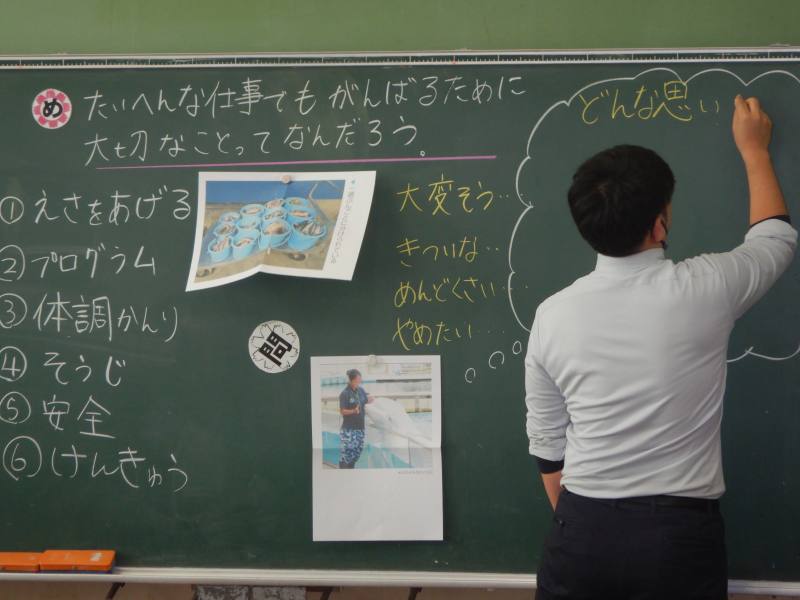 め
たいへんな仕事でもがんばるために
大切なことってなんだろう。
① えさをあげる
② プログラム
③ 体調かんり
④ そうじ
⑤ 安全
⑥ けんきゅう
問
大変そう・・
きついな・・
めんどくさい・・・
やめたい・・・
どんな思い